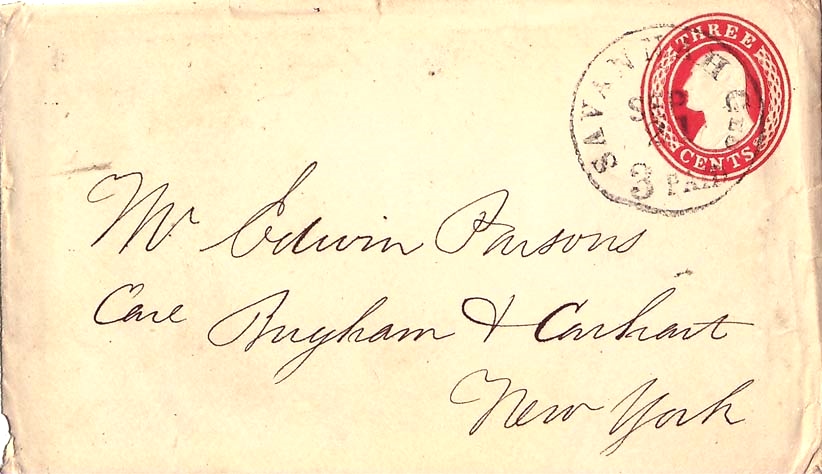 THREE CENTS
SAVANNAH Geo
3 PAID
Mr Edwin Parsons
Care Brigham & Carhart
New York